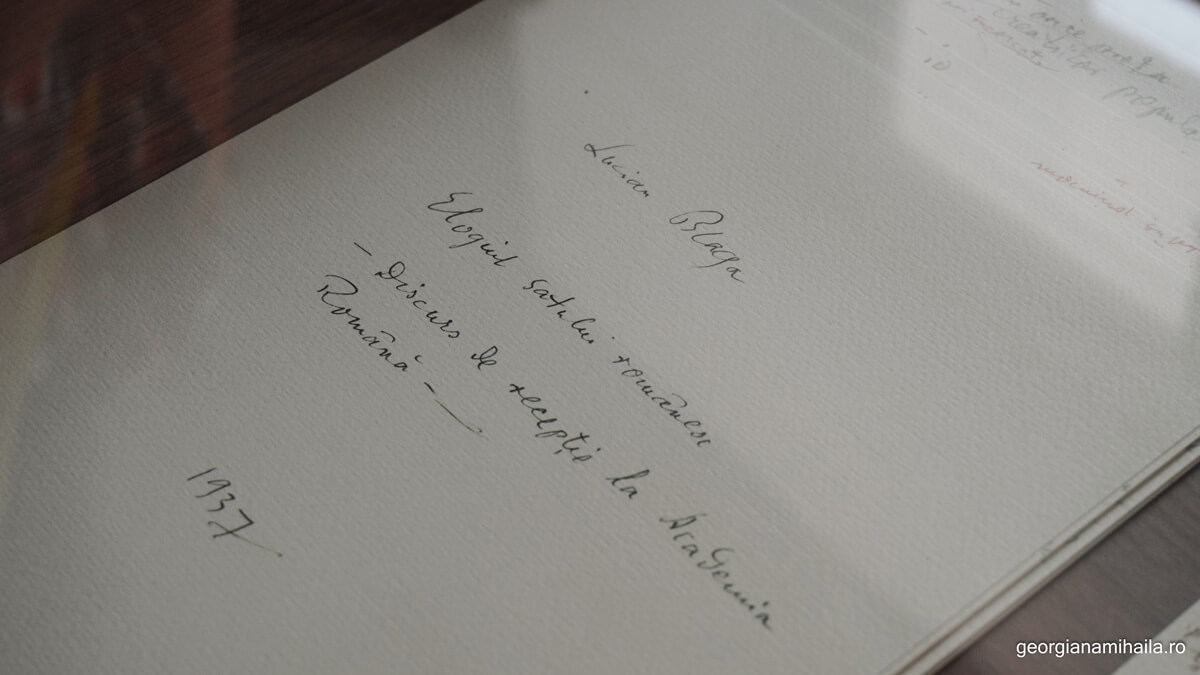 Lucian Blaga
Elogiul satului românesc
- Discurs de recepție la Academia
Română -
1937
georgianamihaila.ro